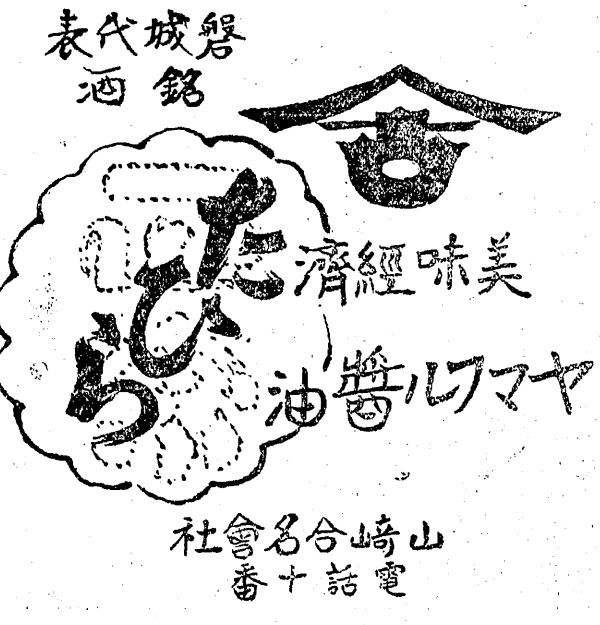 磐城代表
銘酒
古
たひら
美味經濟
ヤマフル醬油
山崎合名會社
電話十番